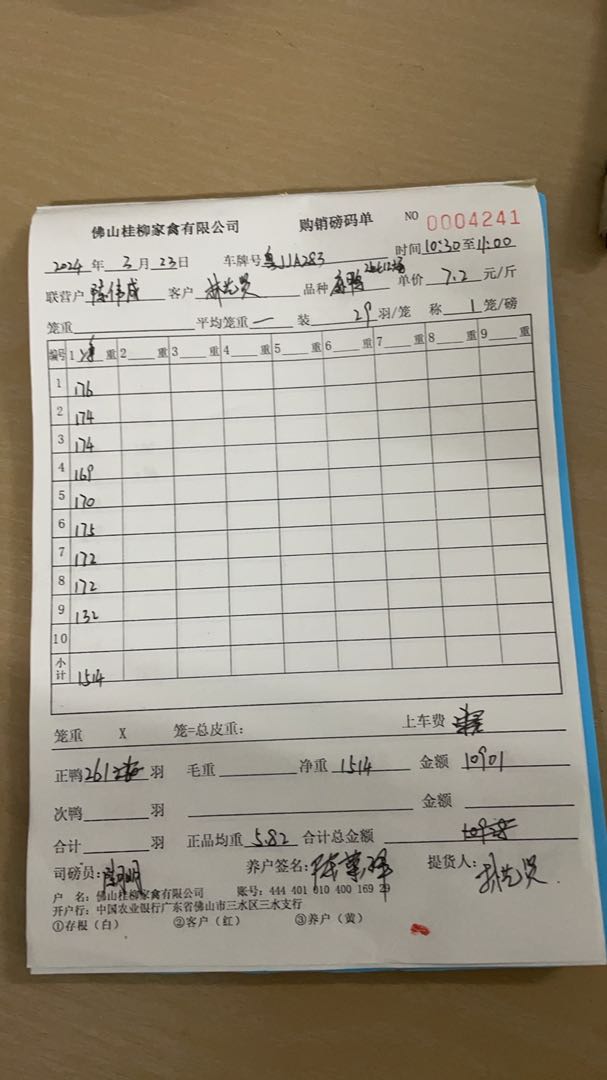 佛山桂柳家禽有限公司 购销磅码单 NO 0004241
2024 年 3 月 23 日 车牌号 粤JJA283 时间 10:30 至 11:00
联营户 陈伟成 客户 品种 单价 7.2 元/斤
笼重 平均笼重 一 装 29 羽/笼 称 1 笼/磅
编号 1 重 2 重 3 重 4 重 5 重 6 重 7 重 8 重 9 重
1 176
2 174
3 174
4 169
5 170
6 175
7 172
8 172
9 132
10
小计 1514
笼重 X 笼=总皮重: 上车费
正鸭 261 羽 毛重 净重 1514 金额 10901
次鸭 羽 金额
合计 羽 正品均重 5.82 合计总金额
司磅员: 养户签名: 提货人:
户 名: 佛山桂柳家禽有限公司 账号: 444 401 010 400 169 29
开户行: 中国农业银行广东省佛山市三水区三水支行
①存根（白） ②客户（红） ③养户（黄）